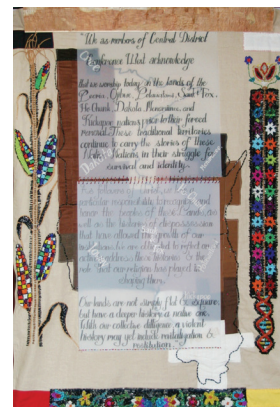 "We as members of Central District
Conference Word acknowledge
that we worship today on the lands of the
Peoria, Ojibwe, Potawatomi, Sauk & Fox,
Ho Chunk, Dakota, Menominee, and
Kickapoo nations prior to their forced
removal. These traditional territories
continue to carry the stories of these
Native Nations in their struggle for
survival and identity.
particular responsibility to recognize and
honor the peoples of these lands as
well as the histories of dispossession
that have allowed the growth of our
institutions. We are obligated to reflect on &
actively address these histories & the
role that our religion has played in
shaping them.
Our lands are not simply flat &
but have a deeper history a native one.
With our collective diligence a violent
history may yet include reconciliation &
restitution.